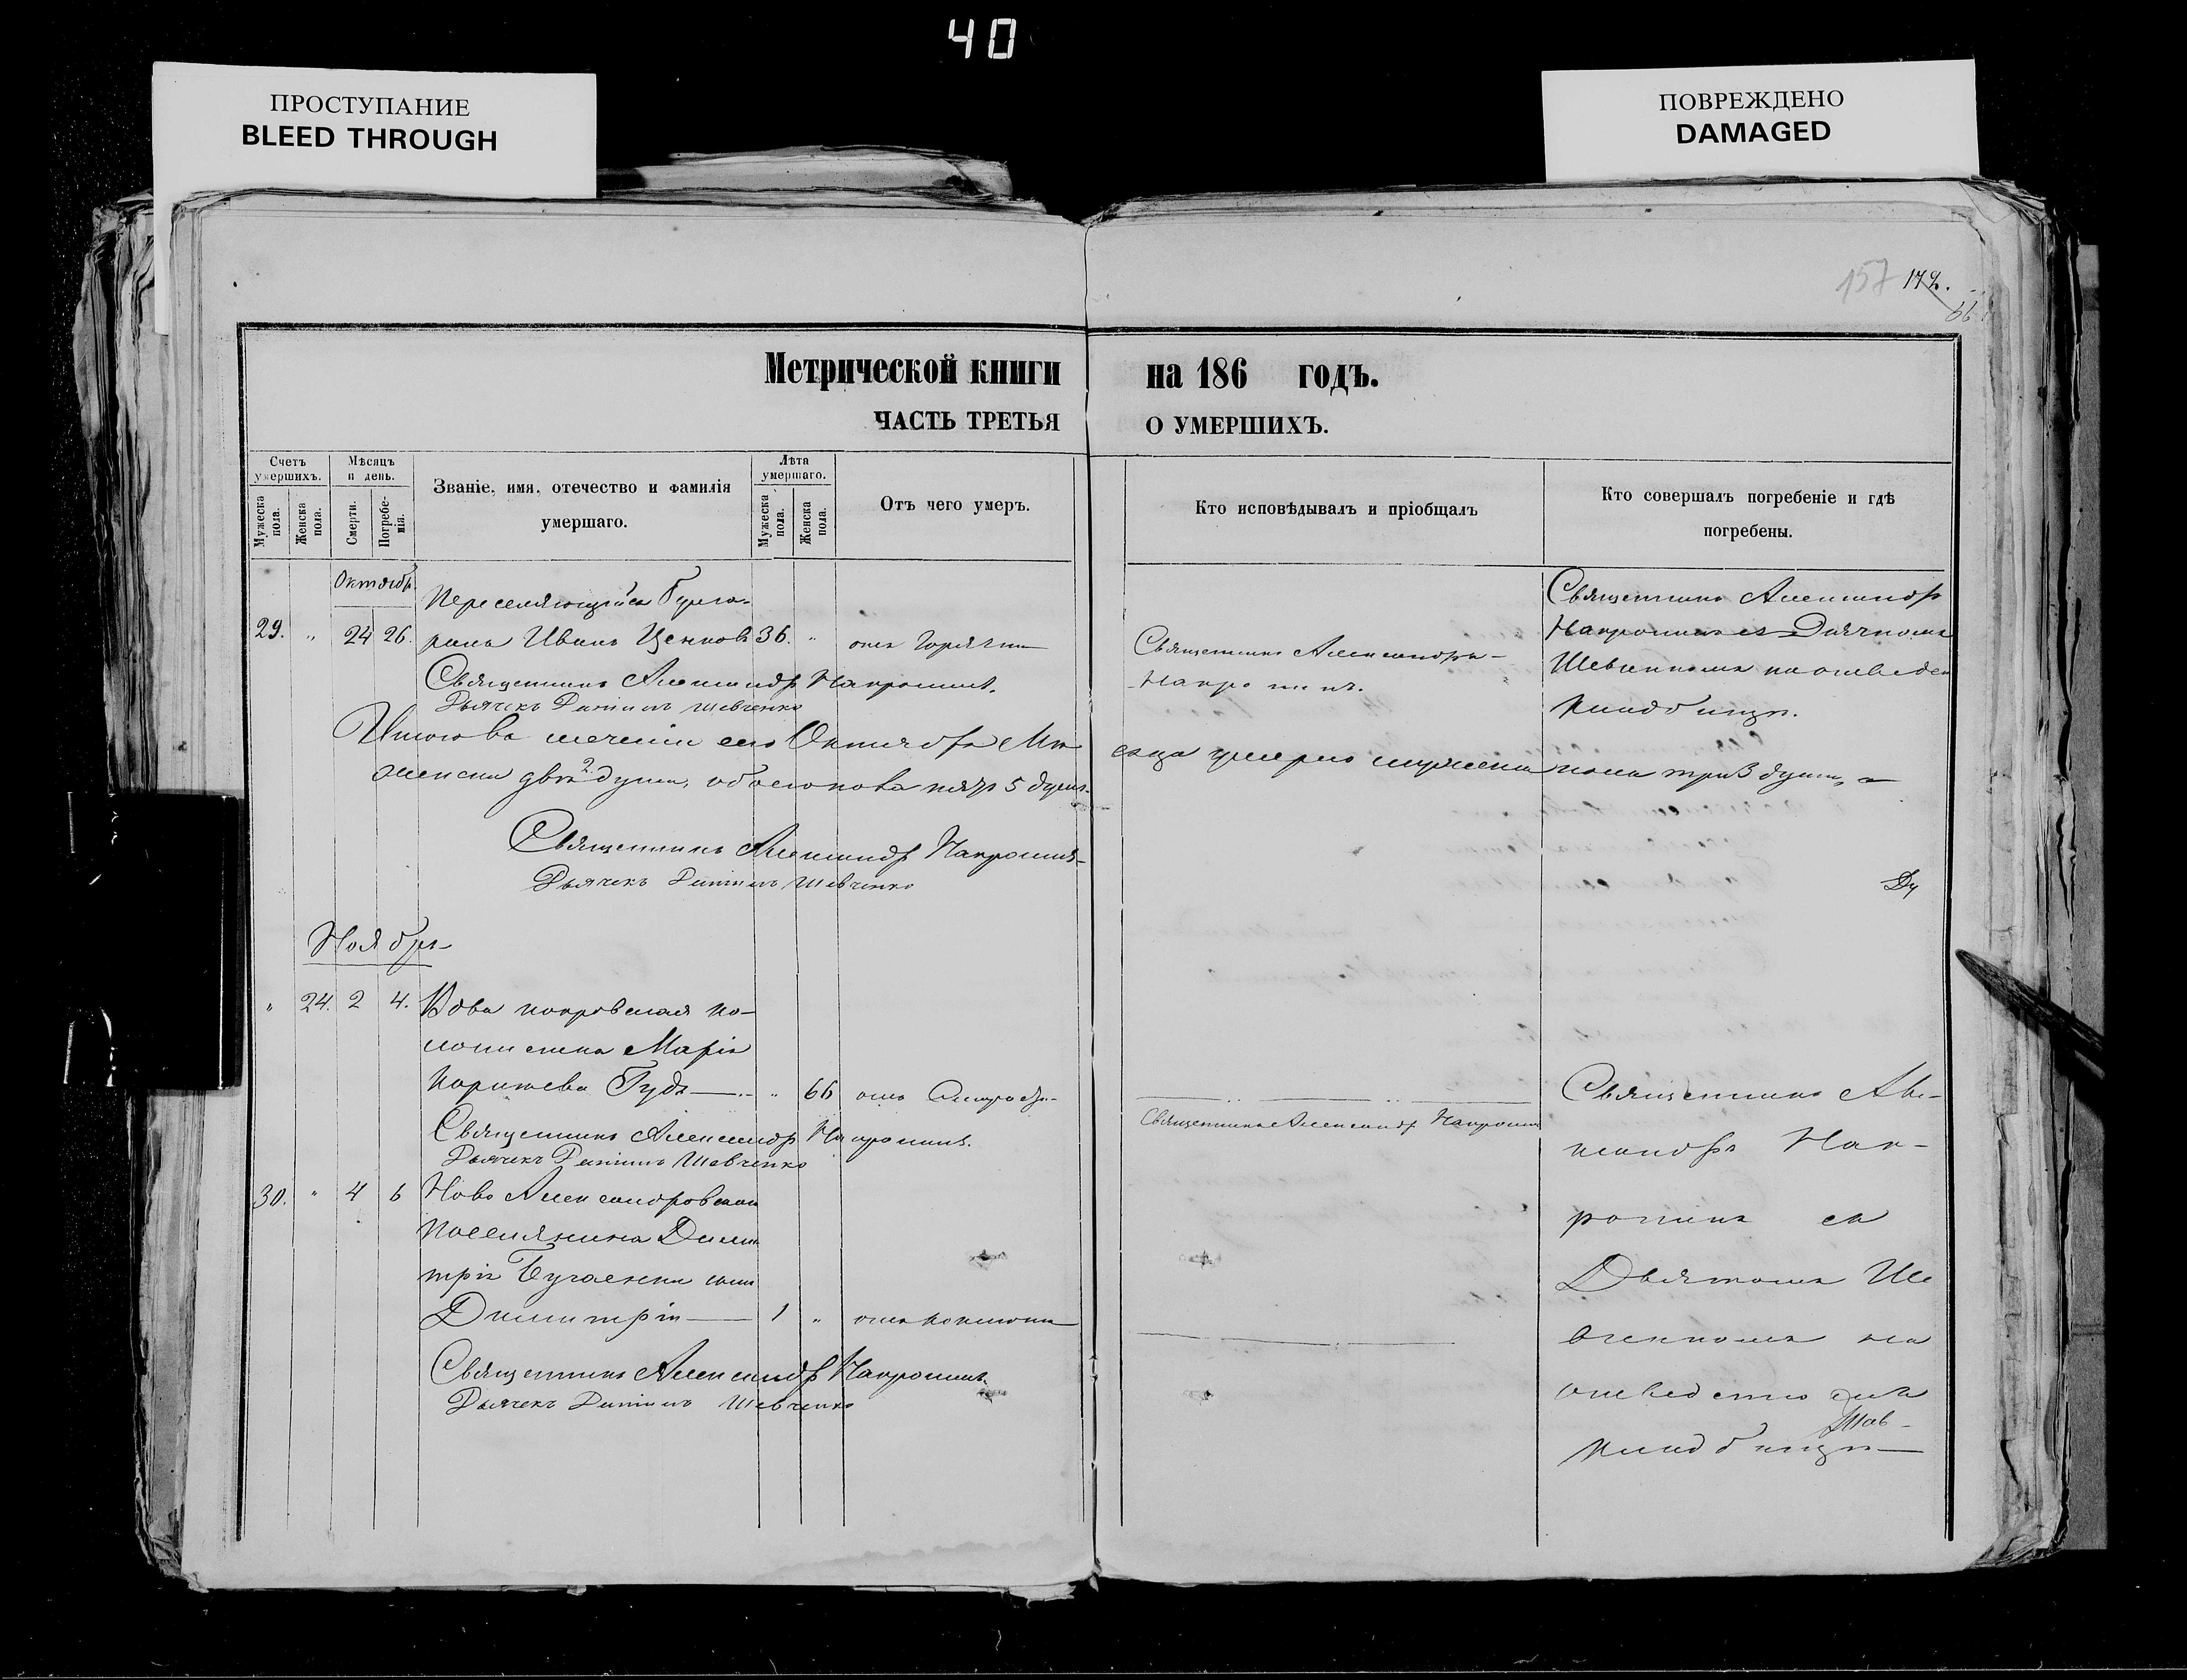 40
ПРОСТУПАНИЕ
BLEED THROUGH
ПОВРЕЖДЕНО
DAMAGED
157 172.
Метрической книги на 186 годъ.
ЧАСТЬ ТРЕТЬЯ О УМЕРШИХЪ.
Счетъ умершихъ.
Мужеска пола.
Женска пола.
Мѣсяцъ и день.
Смерти.
Погребенія.
Званіе, имя, отечество и фамилія умершаго.
Лѣта умершаго.
Мужеска пола.
Женска пола.
Отъ чего умеръ.
Кто исповѣдывалъ и пріобщалъ
Кто совершалъ погребеніе и гдѣ погребены.
Октябр.
Переселяющійся Болга-
29. " 24 26. ринъ Иванъ Ценковъ 36. " отъ горячки
Священникъ Александръ
Дьячекъ Даніилъ Шевченко
Священникъ Александръ
Священникъ Александръ
съ Дьячкомъ
Шевченкомъ на
кладбищѣ.
Итого въ теченіи сего Октября Мѣ-
сяца умерло мужеска пола три 3 души, а
женска двѣ 2 души, обоего пола пять 5 душъ.
Священникъ Александръ
Дьячекъ Даніилъ Шевченко
Ноябрь
" 24. 2 4. Вдова покровская по-
селянка Марія
Гудзь " 66 отъ старости
Священникъ Александръ
Дьячекъ Даніилъ Шевченко
Священникъ Александръ
30. " 4 6 Ново Александровскаго
поселянина Дими
трія Бугаенка сынъ
Димитрій 1 " отъ коклюша
Священникъ Александръ
Дьячекъ Даніилъ Шевченко
Священникъ Але-
ксандръ
съ
Дьячкомъ Ше
вченкомъ на
кладбищѣ